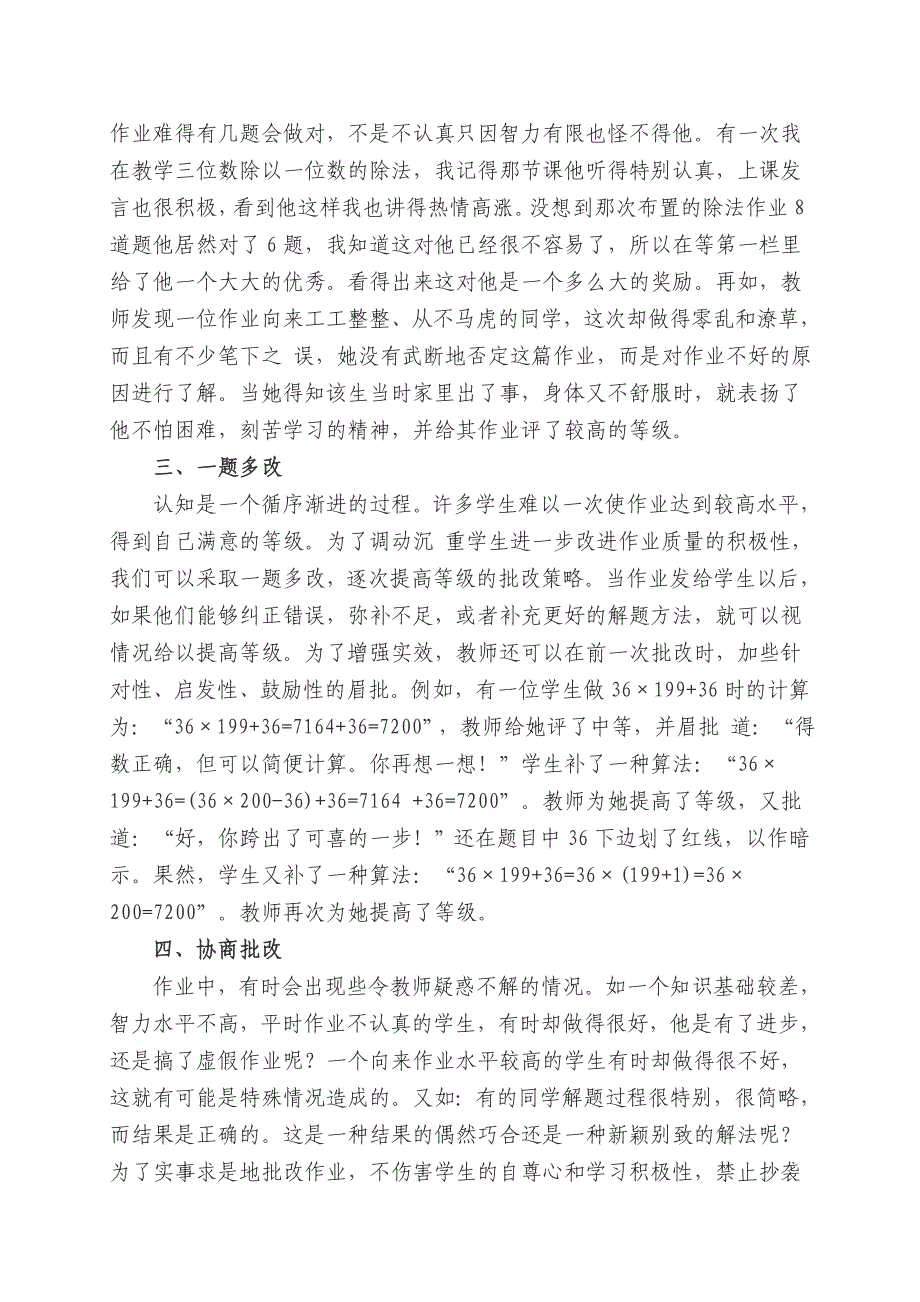 作业难得有几题会做对，不是不认真只因智力有限也怪不得他。有一次我
在教学三位数除以一位数的除法，我记得那节课他听得特别认真，上课发
言也很积极，看到他这样我也讲得热情高涨。没想到那次布置的除法作业 8
道题他居然对了 6 题，我知道这对他已经很不容易了，所以在等第一栏里
给了他一个大大的优秀。看得出来这对他是一个多么大的奖励。再如，教
师发现一位作业向来工工整整、从不马虎的同学，这次却做得零乱和潦草，
而且有不少笔下之 误，她没有武断地否定这篇作业，而是对作业不好的原
因进行了解。当她得知该生当时家里出了事，身体又不舒服时，就表扬了
他不怕困难，刻苦学习的精神，并给其作业评了较高的等级。
三、一题多改
认知是一个循序渐进的过程。许多学生难以一次使作业达到较高水平，
得到自己满意的等级。为了调动沉 重学生进一步改进作业质量的积极性，
我们可以采取一题多改，逐次提高等级的批改策略。当作业发给学生以后，
如果他们能够纠正错误，弥补不足，或者补充更好的解题方法，就可以视
情况给以提高等级。为了增强实效，教师还可以在前一次批改时，加些针
对性、启发性、鼓励性的眉批。例如，有一位学生做 36×199+36 时的计算
为：“36×199+36=7164+36=7200”，教师给她评了中等，并眉批 道：“得
数正确，但可以简便计算。你再想一想！”学生补了一种算法：“36×
199+36=(36×200-36)+36=7164 +36=7200”。教师为她提高了等级，又批
道：“好，你跨出了可喜的一步！”还在题目中 36 下边划了红线，以作暗
示。果然，学生又补了一种算法：“36×199+36=36×(199+1)=36×
200=7200”。教师再次为她提高了等级。
四、协商批改
作业中，有时会出现些令教师疑惑不解的情况。如一个知识基础较差，
智力水平不高，平时作业不认真的学生，有时却做得很好，他是有了进步，
还是搞了虚假作业呢？一个向来作业水平较高的学生有时却做得很不好，
这就有可能是特殊情况造成的。又如：有的同学解题过程很特别，很简略，
而结果是正确的。这是一种结果的偶然巧合还是一种新颖别致的解法呢？
为了实事求是地批改作业，不伤害学生的自尊心和学习积极性，禁止抄袭